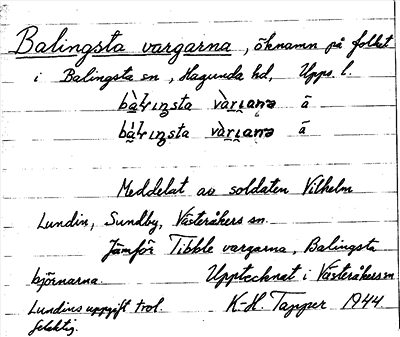 Balingsta vargarna, öknamn på folket
i Balingsta sn, Hagunda hd, Upps. l.
Meddelat av soldaten Vilhelm
Lundin, Sundby, Västeråkers sn.
Jämför Tibble vargarna, Balingsta
björnarna. Upptecknat i Västeråkers sn
Lundins uppgift trol. K-H. Tapper 1944.
felaktig.